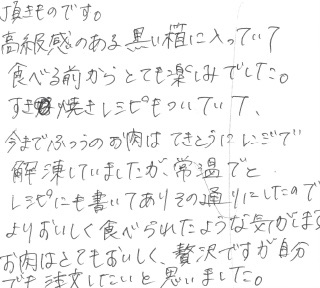 頂きものです。
高級感のある黒い箱に入っていて
食べる前からとても楽しみでした。
すき焼きレシピもついていて、
今までふつうのお肉はてきとうにレンジで
解凍していましたが、常温でと
レシピにも書いてありその通りにしたので
よりおいしく食べられたような気がます
お肉はとてもおいしく、贅沢ですが自分
でも注文したいと思いました。